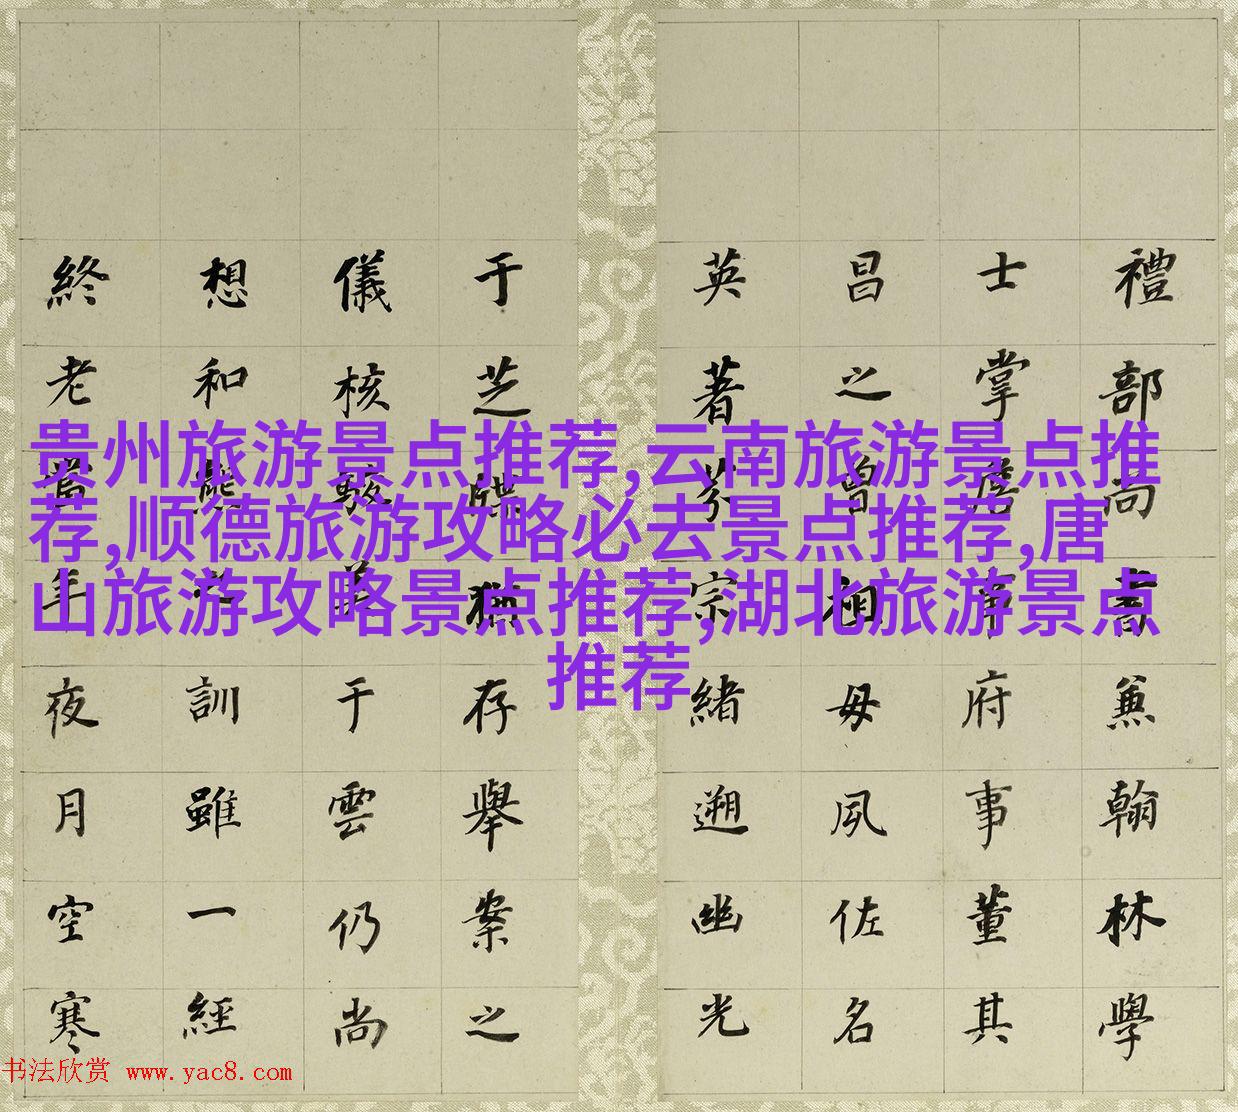 禮部尚書兼翰林學
士掌詹事府事董其
昌之曾祖母夙佐名
英著芬宗緒遡幽光
于芝牒猶存舉案之
儀核駿于雲仍尚
想和熊訓雖一經
終老當年夜月空寒
贵州旅游景点推荐,云南旅游景点推
荐,顺德旅游攻略必去景点推荐,唐
山旅游攻略景点推荐,湖北旅游景点
推荐
书法欣赏 www.yac8.com